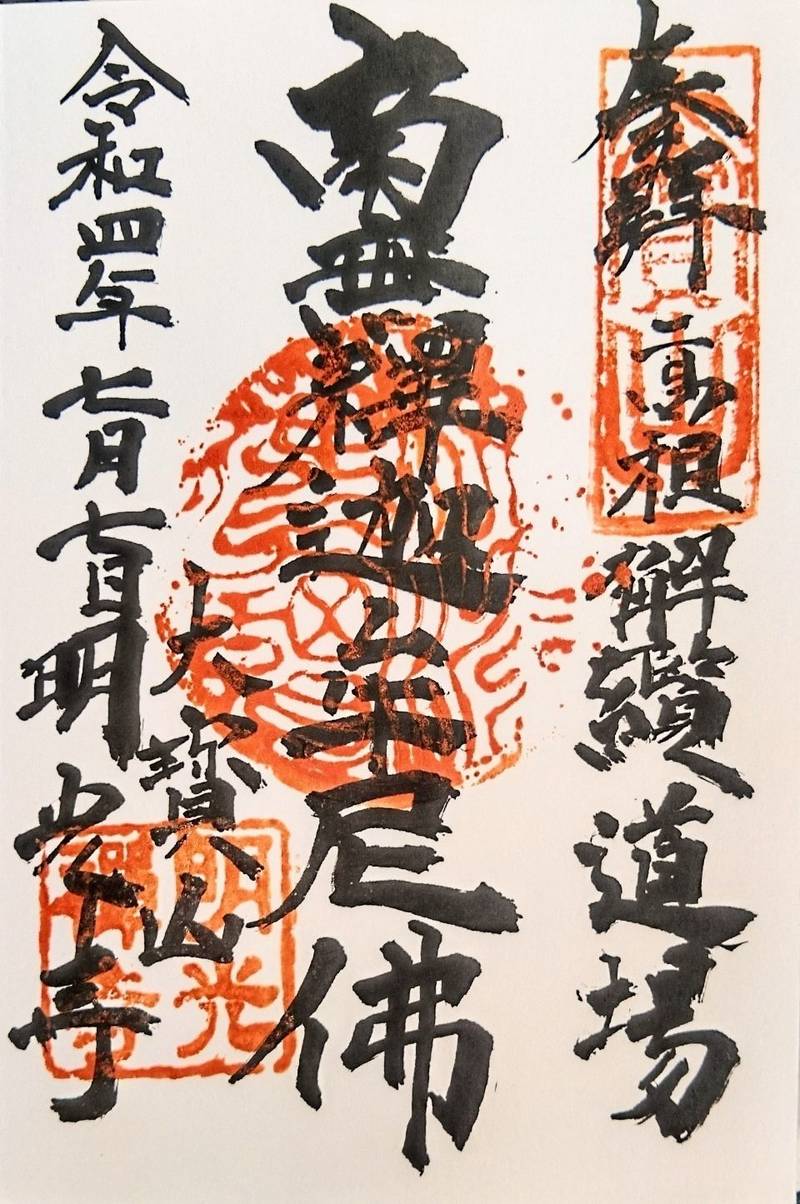 奉拜 高祖解纜道場
南無釋迦牟尼佛
大寳山
令和四年七月七日明光寺
明光
禪寺